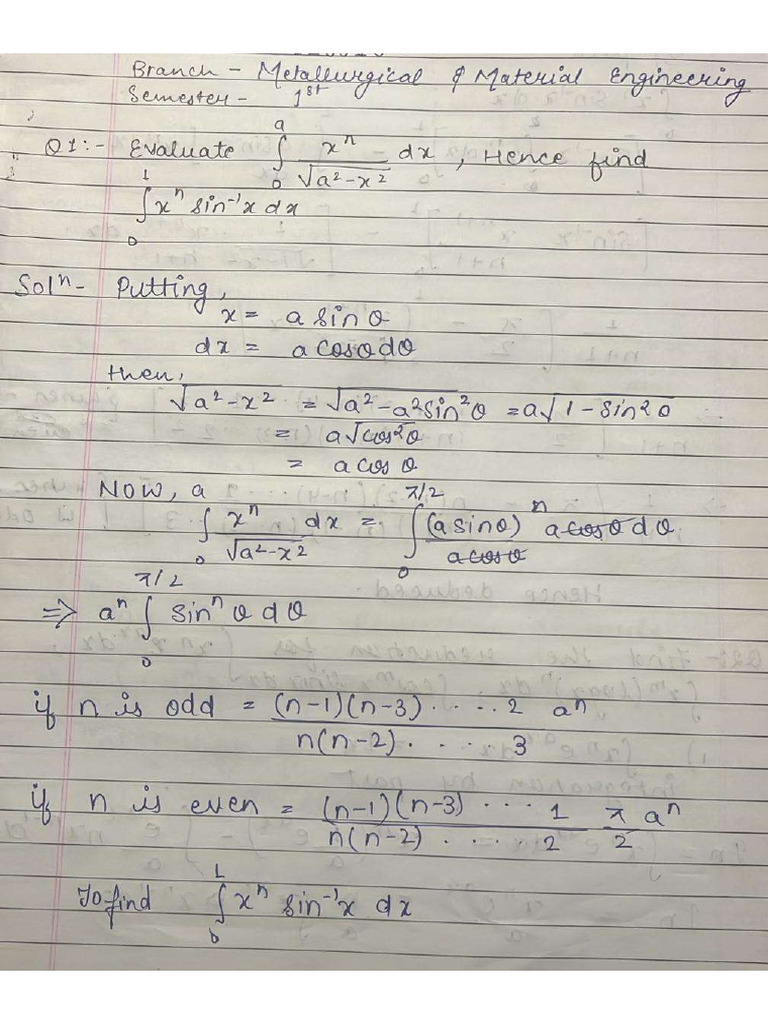 Branch - Metallurgical & Material Engineering
Semester - 1st
Q1:- Evaluate ∫₀ᵃ xⁿ/√(a²-x²) dx, Hence find
∫₀¹ xⁿ sin⁻¹x dx
Solⁿ- Putting,
x = a sinθ
dx = a cosθ dθ
then,
√(a²-x²) = √(a²-a²sin²θ) = a√(1-sin²θ)
= a√(cos²θ)
= a cosθ
Now,
∫₀ᵃ xⁿ/√(a²-x²) dx = ∫₀^(π/2) (a sinθ)ⁿ a cosθ dθ / a cosθ
⇒ aⁿ ∫₀^(π/2) sinⁿθ dθ
if n is odd = (n-1)(n-3)·····2 / n(n-2)·····3 aⁿ
if n is even = (n-1)(n-3)···1 / n(n-2)·····2 π/2 aⁿ
To find ∫₀¹ xⁿ sin⁻¹x dx